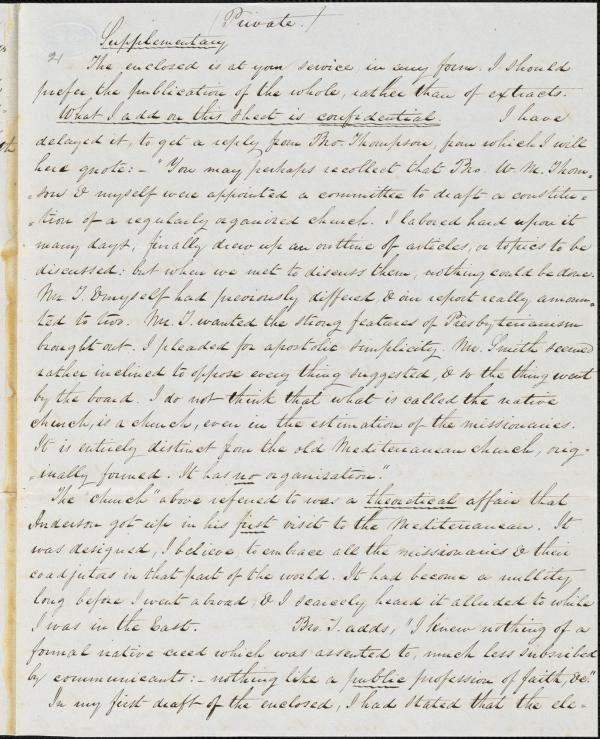 (Private.)
Supplementary
21
The enclosed is at your service, in any form. I should
prefer the publication of the whole, rather than of extracts.
What I add on this sheet is confidential. I have
delayed it, to get a reply from Bro. Thompson, from which I will
here quote:– "You may perhaps recollect that Bro. W. M. Thom-
-son & myself were appointed a committee to draft a constitu-
-tion of a regularly organized church. I labored hard upon it
many days, finally drew up an outline of articles, or topics to be
discussed: but when we met to discuss them, nothing could be done.
Mr. T. & myself had previously differed & our report really amoun-
ted to two. Mr. T. wanted the strong features of Presbyterianism
brought out. I pleaded for apostolic simplicity. Mr. Smith seemed
rather inclined to oppose every thing suggested, & so the thing went
by the board. I do not think that what is called the native
church, is a church, even in the estimation of the missionaries.
It is entirely distinct from the old Mediterranean church, orig-
-inally formed. It has no organization."
The "church" above referred to was a theoretical affair that
Anderson got up in his first visit to the Mediterranean. It
was designed, I believe, to embrace all the missionaries & their
coadjutors in that part of the world. It had become a nullity
long before I went abroad, & I scarcely heard it alluded to while
I was in the East. Bro. T. adds, "I knew nothing of a
formal native creed which was assented to, much less subscribed
by communicants:– nothing like a public profession of faith, &c."
In my first draft of the enclosed, I had stated that the ele-